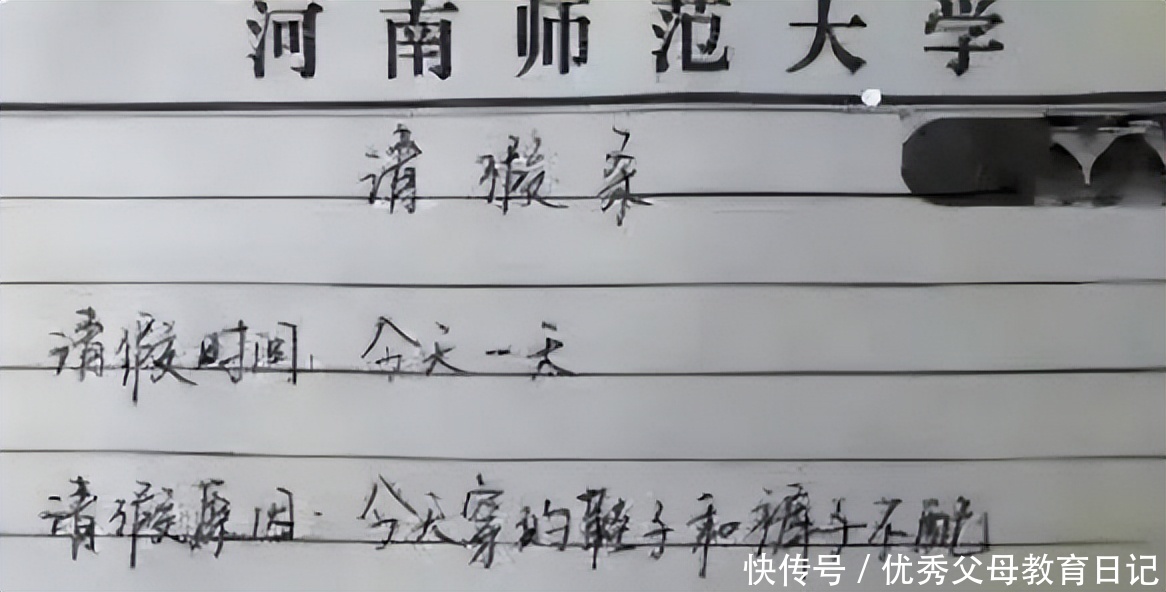 河南师范大学
请假条
请假时间：今天一天
请假原因：今天穿的鞋子和裤子不配
快传号 / 优秀父母教育日记